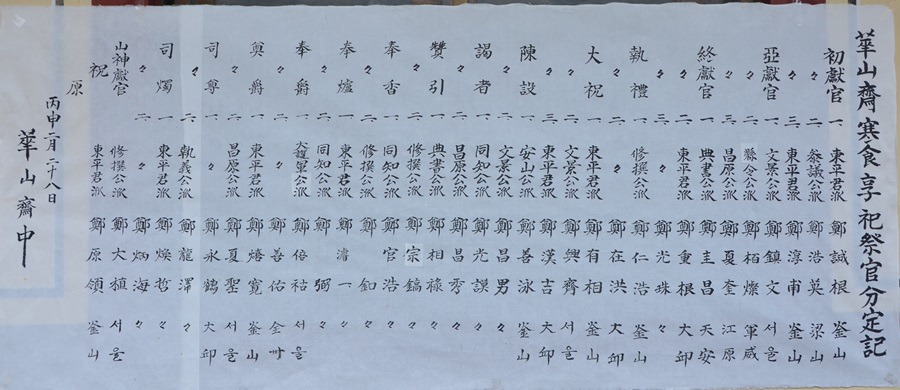 華山齋寒食享祀祭官分定記
初獻官 一 東平君派 鄭誠根 釜山
〃 二 參議公派 鄭浩英 梁山
〃 三 東平君派 鄭淳甫 釜山
亞獻官 一 文景公派 鄭鎮文 서울
〃 二 縣令公派 鄭栢燦 軍威
〃 三 昌原公派 鄭夏奎 江原
終獻官 一 典書公派 鄭圭昌 天安
〃 二 東平君派 鄭重根 大邱
〃 三 〃 鄭光珠 〃
執禮 一 修撰公派 鄭仁浩 釜山
〃 二 〃 鄭在洪 大邱
大祝 一 東平君派 鄭有相 釜山
〃 二 文景公派 鄭興齊 서울
〃 三 東平君派 鄭漢吉 大邱
陳設 一 安山公派 鄭善泳 釜山
〃 二 文景公派 鄭昌男 〃
謁者 一 同知公派 鄭光謨 〃
〃 二 昌原公派 鄭昌秀 〃
贊引 一 典書公派 鄭相祿 〃
〃 二 修撰公派 鄭宗鎬 〃
奉香 一 同知公派 鄭官浩 〃
〃 二 修撰公派 鄭 〃
奉爐 一 東平君派 鄭一 〃
〃 二 同知公派 鄭弼 〃
奉爵 一 大護軍公派 鄭倍祜 서울
〃 二 〃 鄭善佑 金州
奠爵 一 東平君派 鄭焙寬 釜山
〃 二 昌原公派 鄭夏聖 서울
司尊 一 〃 鄭永鶴 大邱
〃 二 執義公派 鄭龍澤 〃
司燭 一 東平君派 鄭煥哲 〃
〃 二 〃 鄭炳海 〃
山神獻官 修撰公派 鄭大植 서울
〃 祝 東平君派 鄭原領 釜山
原
丙申二月二十八日
華山齋中